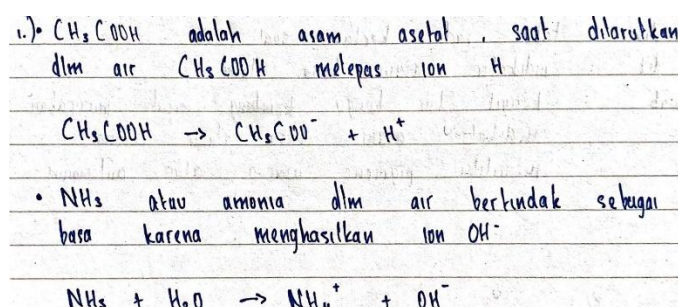 1.). • CH₃COOH adalah asam asetat. saat dilarutkan
dlm air CH₃COOH melepas ion H
CH₃COOH → CH₃COO⁻ + H⁺
• NH₃ atau amonia dlm air bertindak sebagai
basa karena menghasilkan ion OH⁻
NH₃ + H₂O → NH₄⁺ + OH⁻